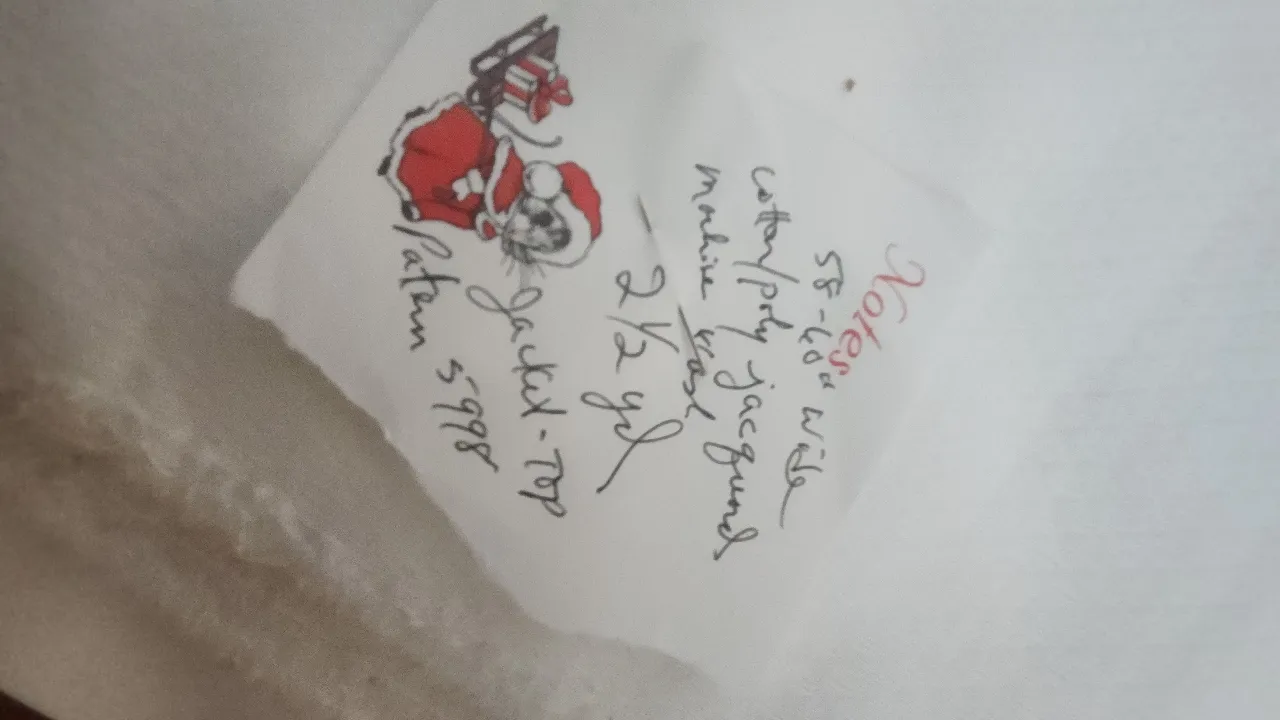 Notes
58-60" wide
cotton/poly jacquard
machine wash
2 1/2 yd
Jacket-Top
Pattern 5998